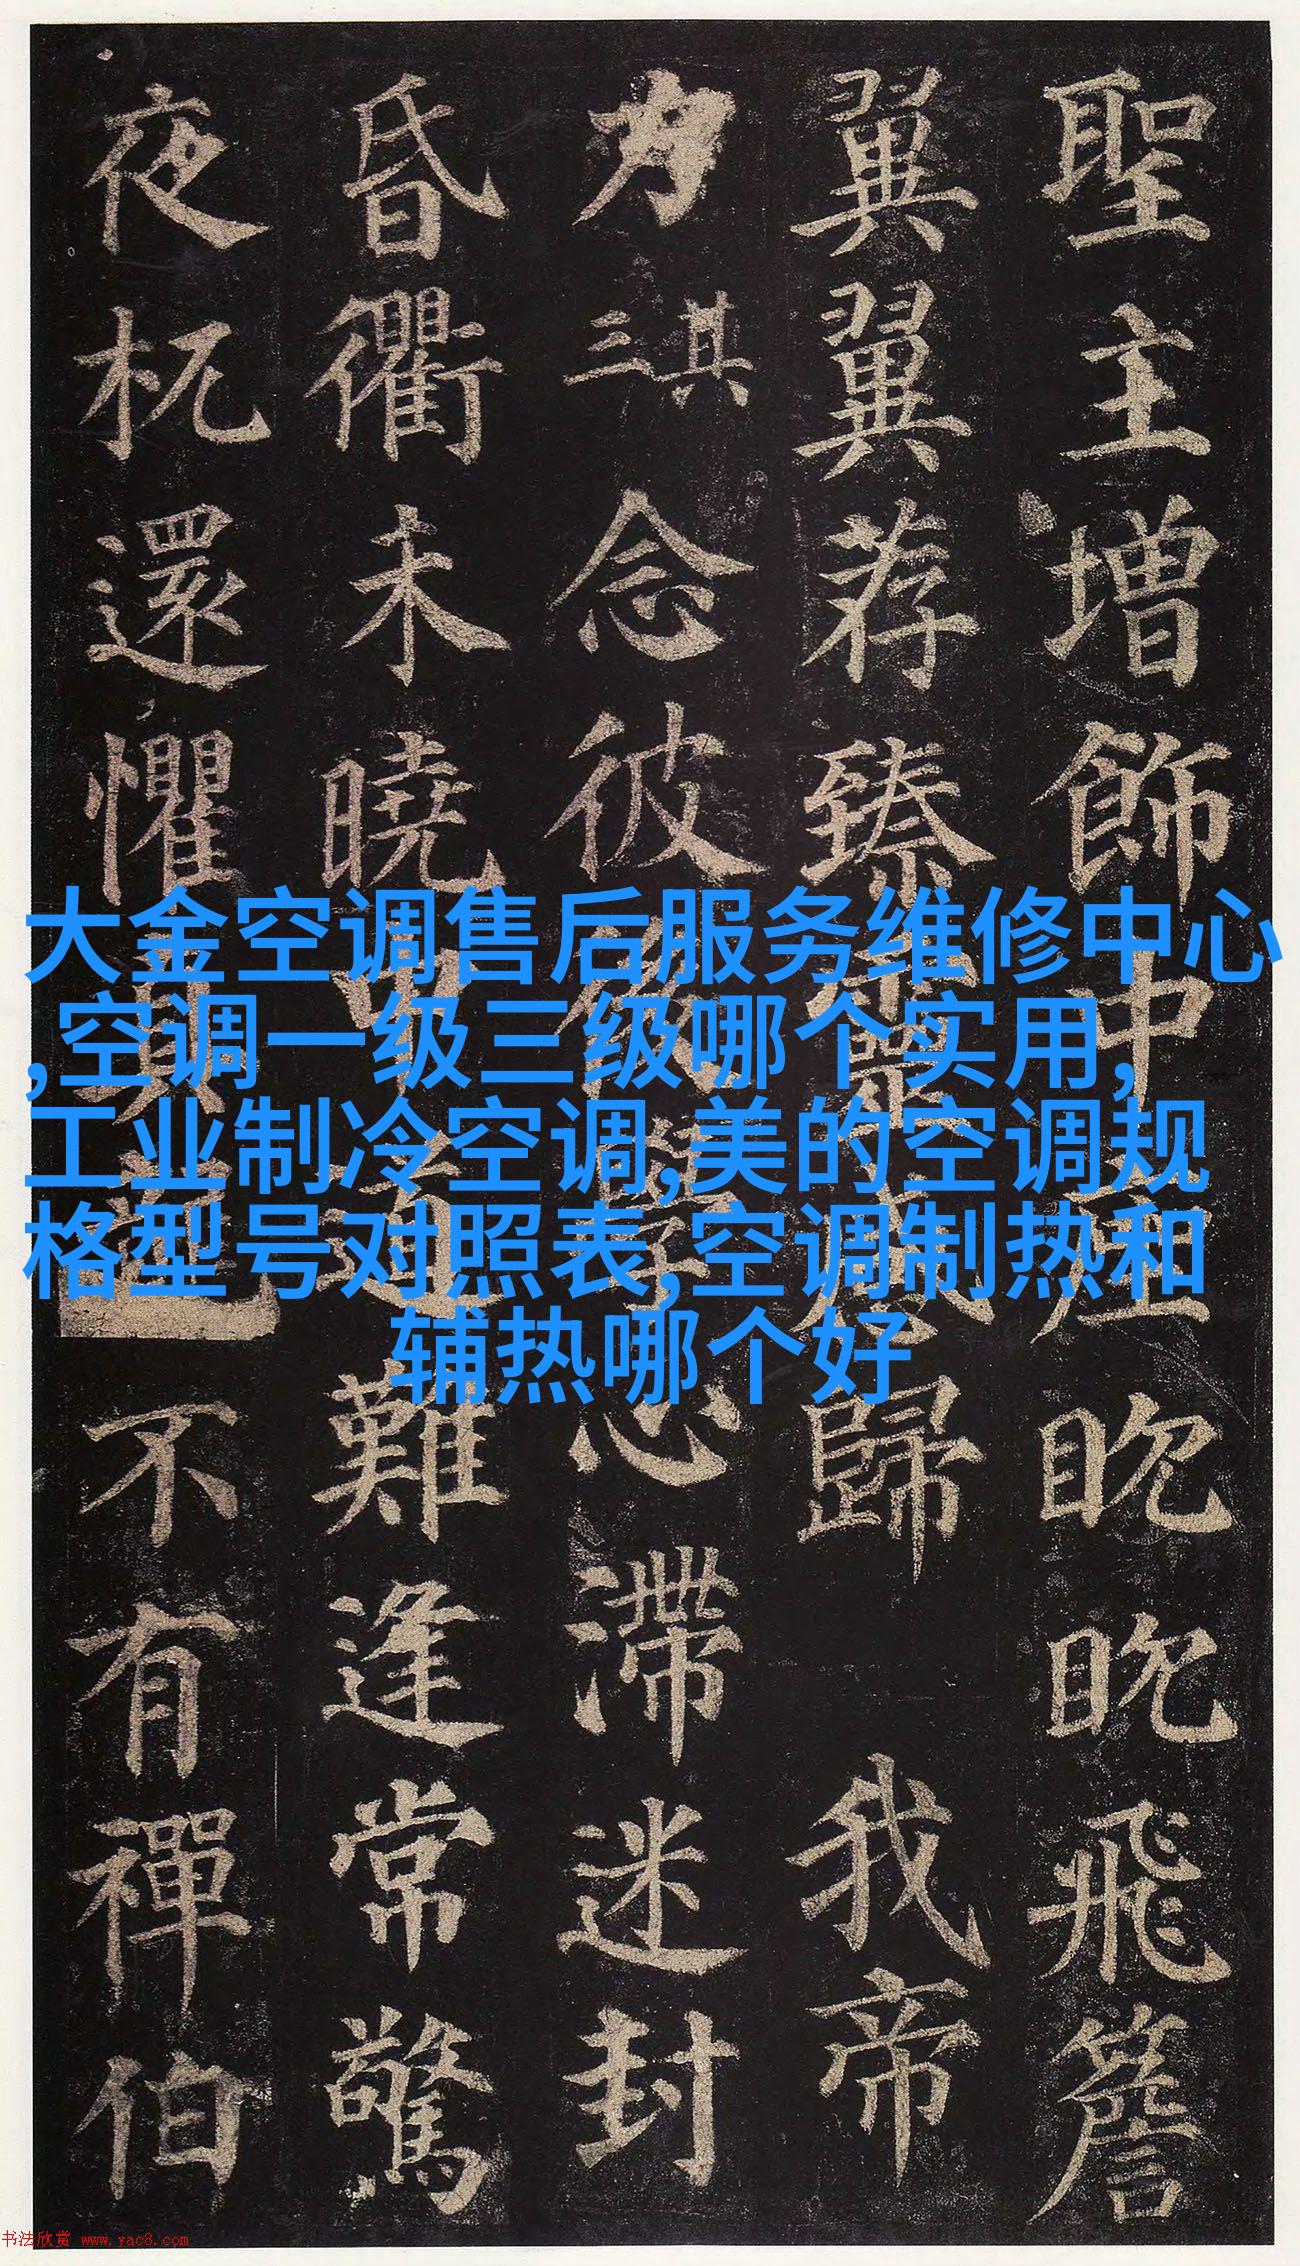 聖主增飾中
座眖眖飛簷
翼翼荐臻
歸
我帝
力
其三
念彼
心滯迷封
昏衢未曉
難逢常驚
夜杌還懼
不有禪伯
大金空调售后服务维修中心
,空调一级三级哪个实用,
工业制冷空调,美的空调规
格型号对照表,空调制热和
辅热哪个好
书法欣赏 www.yac8.com